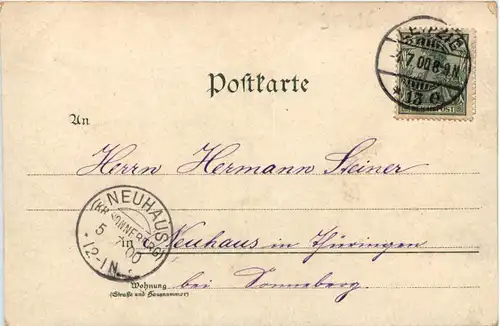 LEIPZIG
7.00 8-9N
* 13 c
Postkarte
An
Herrn Hermann Steiner
NEUHAUS
(KR. SONNEBERG)
5 7 00
* 12-1N.
in Neuhaus in Thüringen
bei Sonneberg
Wohnung
(Straße und Hausnummer)